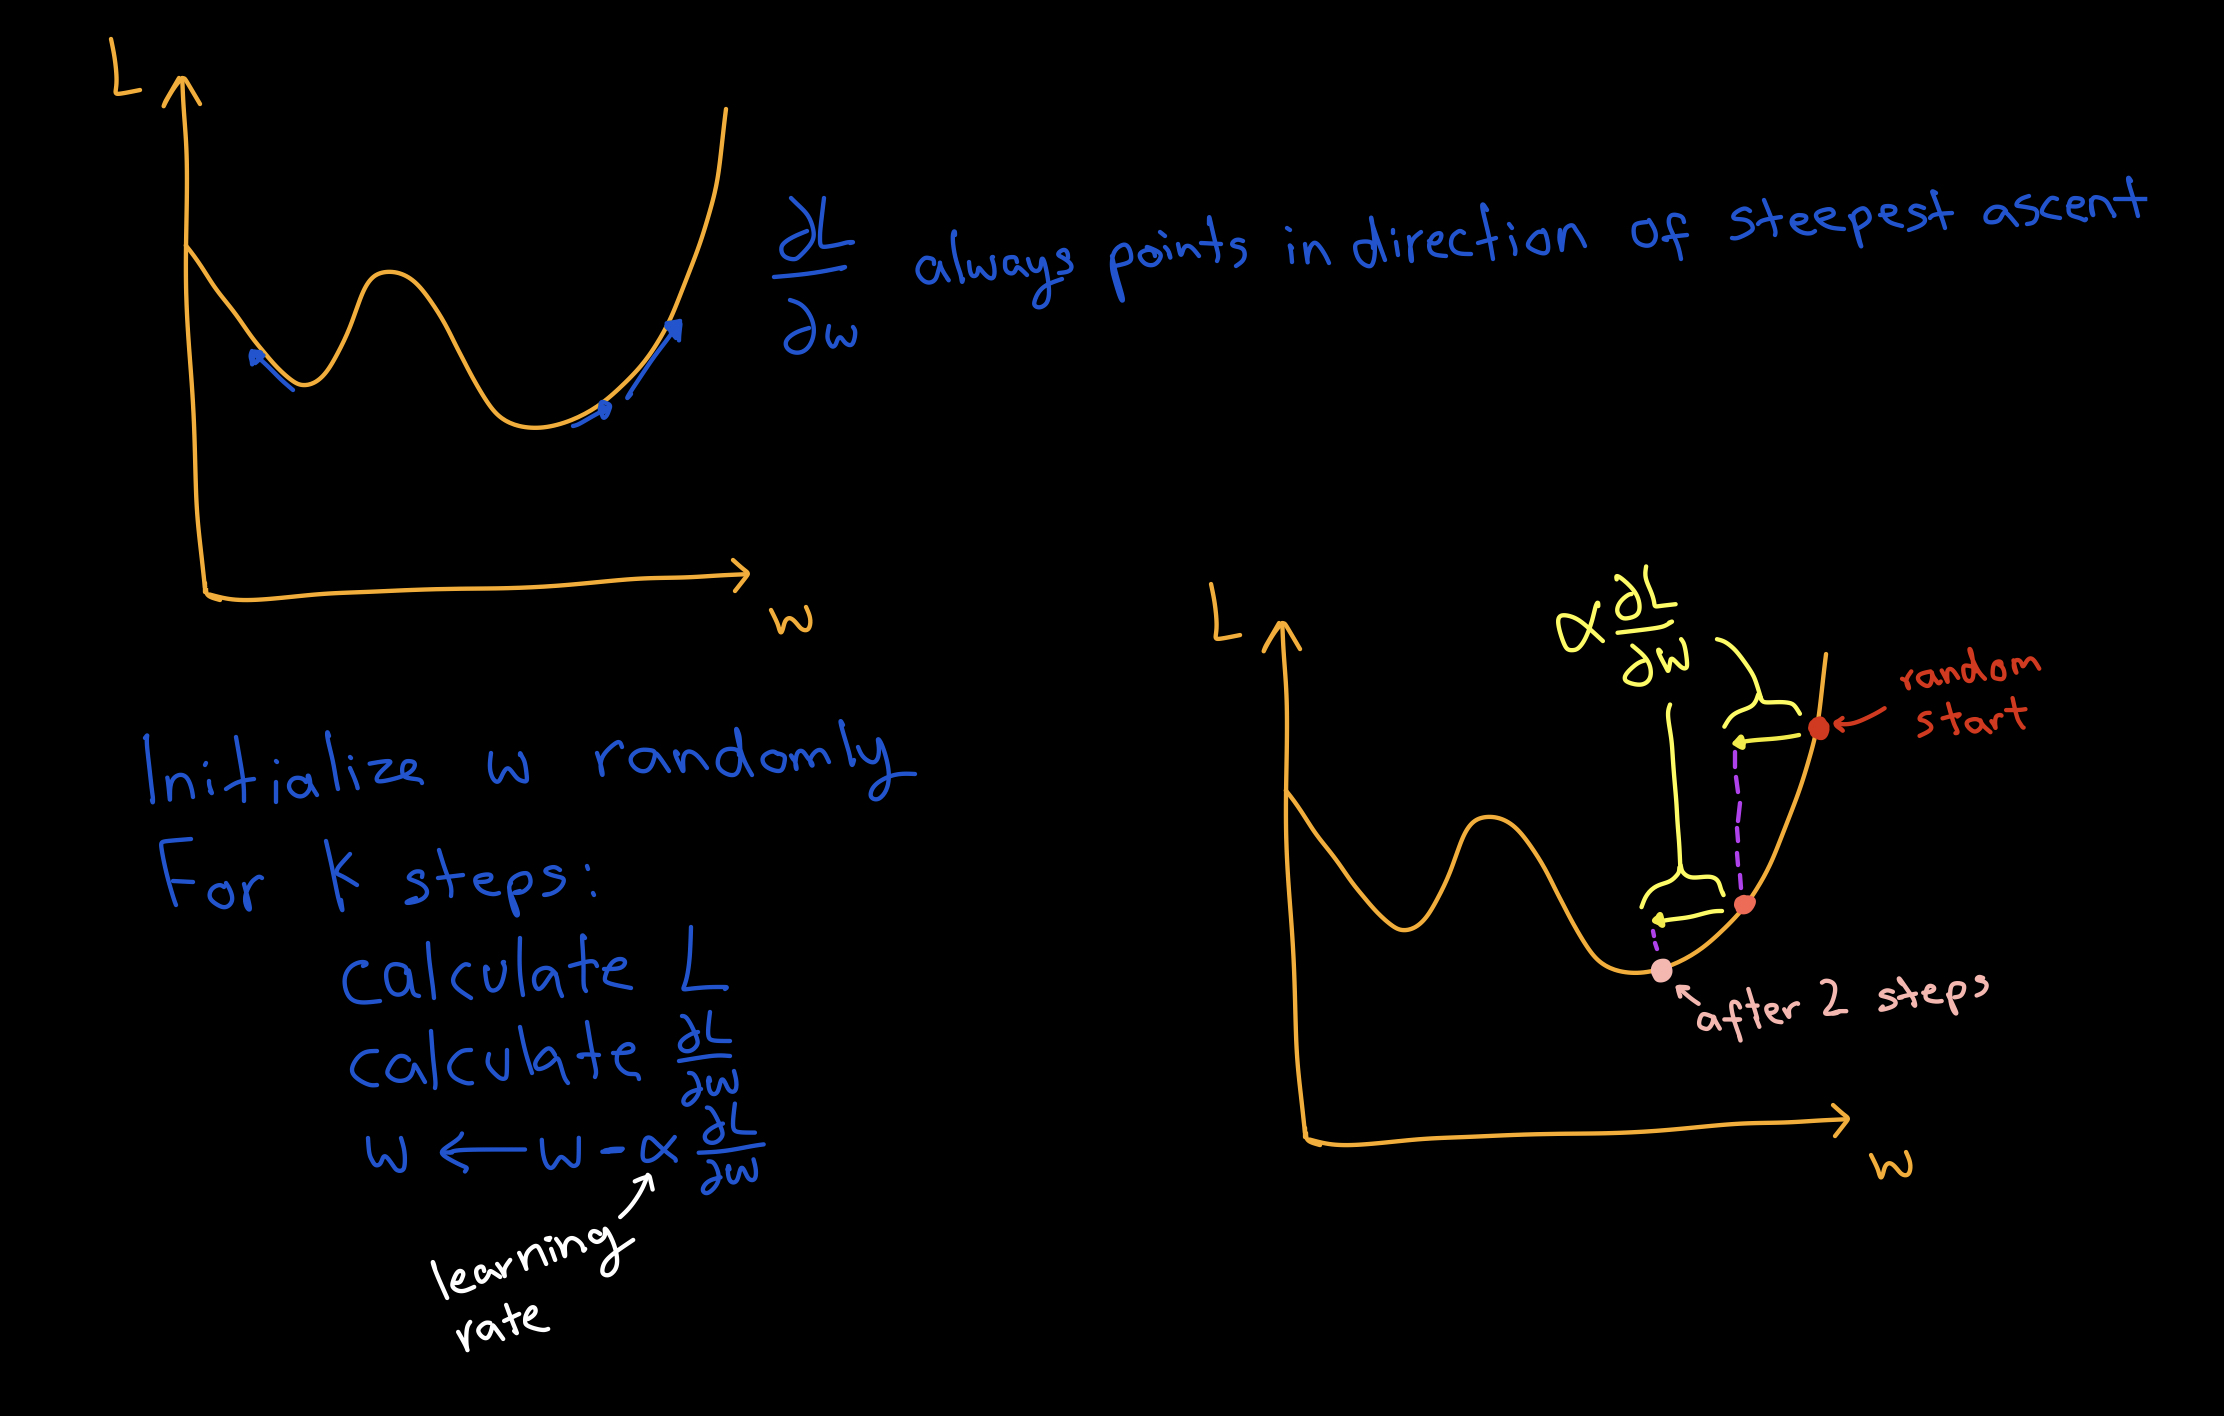 L
∂L/∂w always points in direction of steepest ascent
w
Initialize w randomly
For k steps:
calculate L
calculate ∂L/∂w
w ← w - α ∂L/∂w
learning
rate
L
α ∂L/∂w
random
start
after 2 steps
w